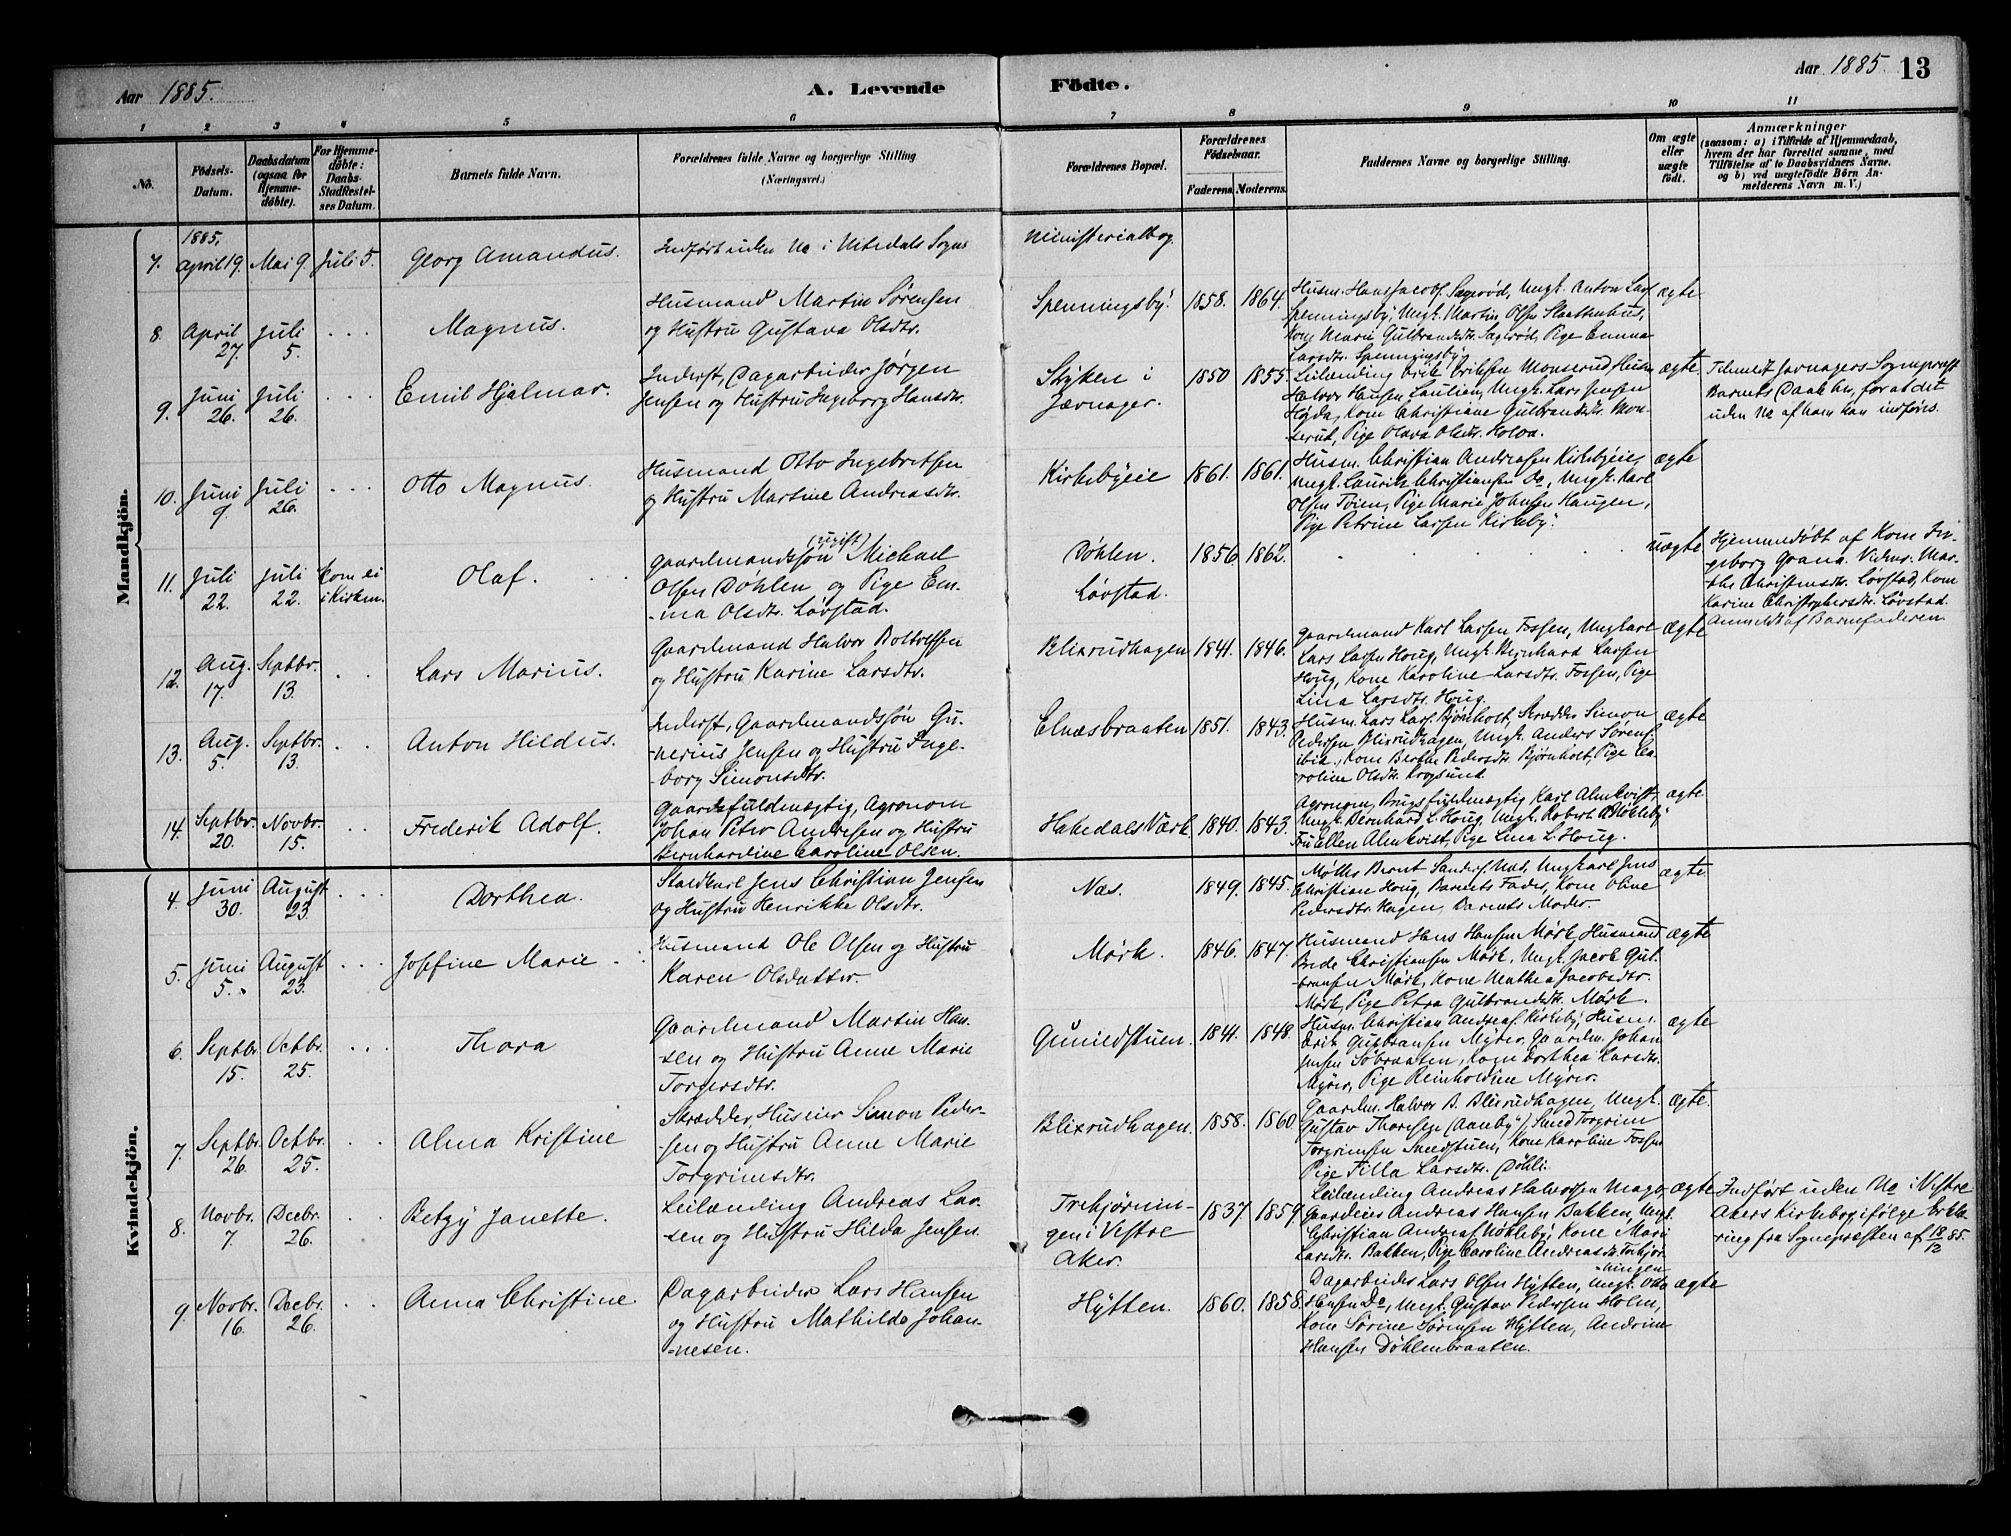 Aar 1885. A. Levende Födte. Aar 1885. 13
1 2 3 4 5 6 7 8 9 10 11
No. Födsels-Datum. Daabsdatum (ogsaa for Hjemme-döbte). For Hjemme-döbte: Daabs-Stadfestel-ses Datum. Barnets fulde Navn. Forældrenes fulde Navne og borgerlige Stilling (Næringsvei.) Forældrenes Bopæl. Forældrenes Födselsaar. Faderens. Moderens. Faddernes Navne og borgerlige Stilling. Om ægte eller uægte födt. Anmærkninger (saasom: a) i Tilfælde af Hjemmedaab, hvem der har forrettet samme, med Tilföielse af to Daabsvidners Navne, og b) ved uægtefödte Börn An-melderens Navn m. V.)
Mandkjön.
1885.
7. April 19. Mai 9. Juli 5. Georg Amandus. Indført uden No i Nitedals Sogns Ministerialbog.
8. April 27. Juli 5. Magnus. Husmand Martin Sørensen
og Hustru Gustava Olsdtr. Spenningsby. 1858. 1864. Husm. Hans Jacobs. Sagerød, Ungk. Anton Lars.
Spenningsby, Ungk. Martin Olsen Slaattenhus,
Kone Marie Gulbrandsdtr. Sagerød, Pige Emma
Larsdtr. Spenningsby. ægte
9. Juni 26. Juli 26. Emil Hjalmar. Inderst, Dagarbeider Jørgen
Jensen og Hustru Ingeborg Hansdtr. Stryken i
Jævnager. 1850 1855. Leilænding Erik Eriksen Monserud, Husm.
Halvor Hansen, Ungk. Lars Jensen
Kone Christiane Gulbrandsdtr. Mon-
serud, Pige Olava Olsdtr. Holva. ægte Tilmeldt Jævnagers Sognepræst
Barnets Daab hr, for at det
uden No af ham kan indføres.
10. Juni 9. Juli 26. Otto Magnus. Husmand Otto Ingebretsen
og Hustru Martine Andreasdtr. Kirkebyeie 1861. 1861. Husm. Christian Andreasen Kirkebyeie,
Ungk. Laurits Christiansen Do, Ungk. Karl
Olsen Tøien, Pige Marie Johnsen Haugen,
Pige Petrine Larsen Kirkeby. ægte
11. Juli 22. Juli 22. Kom ei i Kirken. Olaf. Gaardmandssøn (ugift) Michael
Olsen Døhlen og Pige Em-
-ma Olsdtr. Løvstad. Døhlen.
Løvstad. 1856. 1862. uægte Hjemmedøbt af Kone In-
geborg Grana. Vidner: Mar-
-the Christensdtr. Løvstad, Kone
Karine Christophersdtr. Løvstad.
Anmeldt af Barnefaderen.
12. Aug. 17. Septbr. 13. Lars Marius. Gaardmand Halvor Bottolfsen
og Hustru Karine Larsdtr. Blixrudhagen 1841. 1846. Gaardmand Karl Larsen Fossen, Ungkarl
Lars Larsen Houg, Ungk. Bernhard Larsen
Houg, Kone Karoline Larsdtr. Fossen, Pige
Lina Larsdtr. Houg. ægte
13. Aug. 5. Septbr. 13. Anton Hildus. Inderst, Gaardmandssøn Gu-
-nerius Jensen og Hustru Inge-
-borg Simonsdtr. Elnæsbraaten 1851. 1843. Husm. Lars Lars. Bjørnholt, Skrædder Simon
Pedersen Blixrudhagen, Ungk. Anders Sørens.
ibid., Kone Berthe Pedersdtr. Bjørnholt, Pige Ca-
roline Olsdtr. Krogsund. ægte
14. Septbr. 20. Novbr. 15. Frederik Adolf. Gaardsfuldmægtig, Agronom
Johan Peter Andresen og Hustru
Bernhardine Caroline Olsen. Hakedals Værk 1840. 1843. Agronom, Brugsfuldmægtig Karl Almkvist,
Ungk. Bernhard L. Houg, Ungk. Robert Nökleby,
Fru Ellen Almkvist, Pige Lina L. Houg. ægte
Kvindekjön.
4. Juni 30. August 23. Dorthea. Staldkarl Jens Christian Jensen
og Hustru Henrikke Olsdtr. Næs. 1849. 1845. Møller Bernt Anders. Næs, Ungkarl Jens
Christian Houg, Barnets Fader, Kone Oline
Pedersdtr. Hagen, Barnets Moder. ægte
5. Juni 5. August 23. Josefine Marie Husmand Ole Olsen og Hustru
Karen Olsdatter. Mørk. 1846. 1847. Husmand Hans Hansen Mørk, Husmand
Brede Christiansen Mørk, Ungk. Jacob Gul-
bransen Mørk, Kone Mathea Jacobsdtr.
Mørk, Pige Petra Gulbrandsdtr. Mørk. ægte
6. Septbr. 15. Octbr. 25. Thora Gaardmand Martin Han-
sen og Hustru Anne Marie
Torgersdtr. Gunildstuen. 1841. 1848. Husm. Christian Andreas. Kirkeby, Husm.
Erik Gulbransen Myrer, Gaardm. Johan
Jensen Søbraaten, Kone Dorthea Larsdtr.
Myrer, Pige Reinholdine Myrer. ægte
7. Septbr. 26. Octbr. 25. Alma Kristine Skrædder, Huseier Simon Peder-
-sen og Hustru Anne Marie
Torgrimsdtr. Blixrudhagen. 1858. 1860 Gaardm. Halvor B. Blixrudhagen, Ungk.
Gustav Thoresen (Aanby), Smed Torgrim
Torgrimsen Smedstuen, Kone Karoline Fossen
Pige Filla Larsdtr. Døhli. ægte.
8. Novbr. 7. Decbr. 26. Betzy Janette. Leilænding Andreas Lar-
-sen og Hustru Hilda Jensen. Trehjørnin-
gen i Vestre
Aker. 1837. 1859. Leilænding Andreas Halvorsen Mago,
Gaardeier Andreas Hansen Bakken, Ungk.
Christian Andreas. Nökleby, Kone Marie
Larsdtr. Bakken, Pige Caroline Andreasdtr. Trehjør-
-ningen ægte Indført uden No i Vestre
Akers Kirkebog ifølge Erklæ-
ring fra Sognepræsten af 18/12 85.
9. Novbr. 16. Decbr. 26. Anna Christine Dagarbeider Lars Hansen
og Hustru Mathilde Johan-
-nesen. Hytten. 1860. 1858. Dagarbeider Lars Olsen Hytten, Ungk. Otto
Hansen Do, Ungk. Gustav Pedersen Holm,
Kone Sørine Sørensen Hytten, Andrine
Hansen Döhlenbraaten. ægte